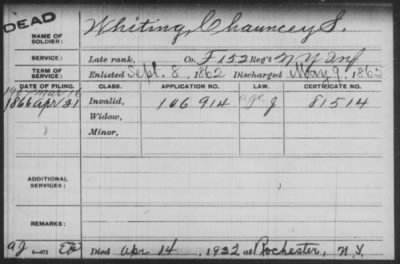 DEAD
NAME OF SOLDIER: Whiting, Chauncey S.
SERVICE: Late rank, Co. F 152 Reg't N Y Inf
TERM OF SERVICE: Enlisted Sept. 8, 1862 Discharged May 9, 1865
DATE OF FILING. CLASS. APPLICATION NO. LAW. CERTIFICATE NO.
Mar 16
1866 Apr 21 Invalid, 106 914 81514
Widow,
Minor,
ADDITIONAL SERVICES:
REMARKS:
Died Apr 14, 1922 at Rochester, N.Y.